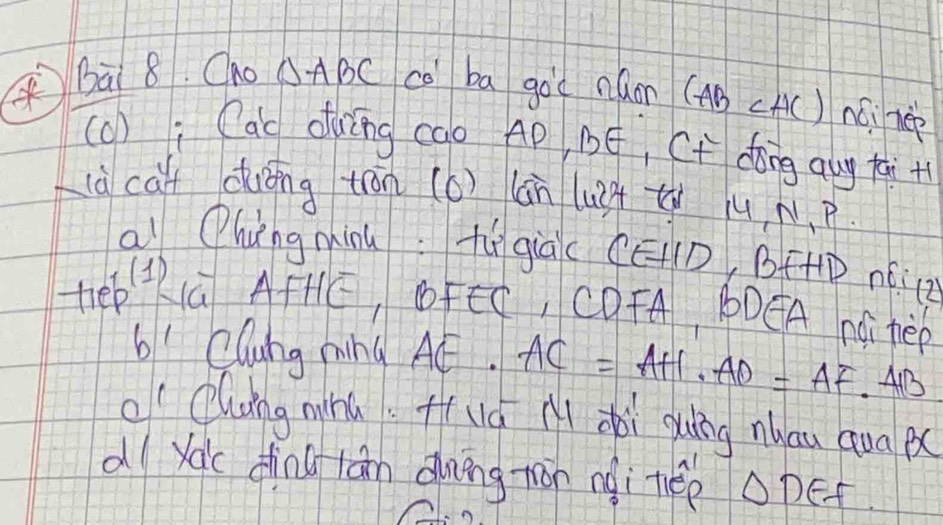 * Bài 8. Cho ΔABC có ba góc nhọn (AB < AC) nội tiếp
(O); Các đường cao AD, BE, CF đồng quy tại H
và cắt đường tròn (O) lần lượt tại M, N, P.
a) Chứng minh: tứ giác CEHD, BFHD nội (2)
tiếp (1) và AFHE, BFEC, CDFA, BDEA nội tiếp
b) Chứng minh AE. AC = AH. AD = AF. AB
c) Chứng minh: H và M đối xứng nhau qua BC
d) Xác định tâm đường tròn nội tiếp ΔDEF.